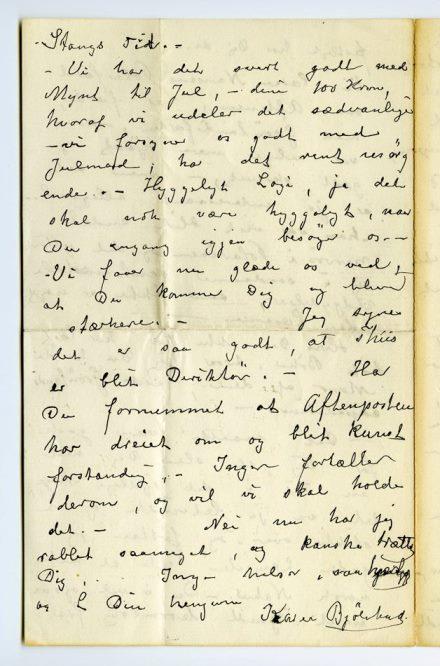 Stangs Tid. -
- Vi har det svært godt med
Mynt til Jul, - dine 100 Kron,
hvoraf vi udeler det sædvanlige
- vi forsyner os godt med
Julemad, har det rent usørg
ende. - Hyggeligt Logi, ja det
skal nok være hyggeligt, naar
Du engang igjen besøger os. -
- Vi faar nu glæde os ved,
at Du kommer Dig og bliver
stærkere. - Jeg synes
det er saa godt, at Thiis
er blit Direktør. - Har
Du fornummet at Aftenposten
har dreiet om og blit kunst
forstandig, - Inger fortæller
derom, og vil vi skal holde
det. - Nei nu har jeg
rablet saameget, og kanske trætte
Dig. Inger hilser, saa
og Din hengivne
Karen Bjølstad.